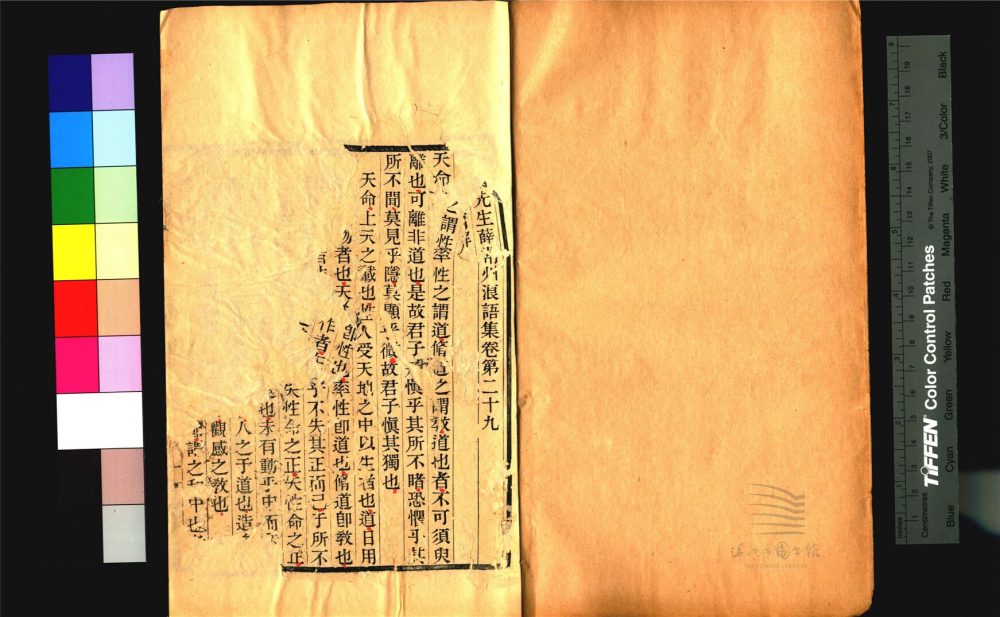 先生薛常州浪語集卷第二十九
天命之謂性率性之謂道脩道之謂敎道也者不可須臾
離也可離非道也是故君子慎乎其所不睹恐懼乎其
所不聞莫見乎隱莫顯乎微故君子慎其獨也
天命上天之載也性人受天地之中以生者也道日用
者也天卽性也率性卽道也脩道卽敎也
作者乎不失其正而已于所不
失性命之正失性命之正
也未有動乎中而
人之于道也造
觀感之敎也
謂之和中也
溫州市圖書館
WENZHOU LIBRARY
Inches
Centimetres
TIFFEN Color Control Patches
© The Tiffen Company, 2007
Blue Cyan Green Yellow Red Magenta White 3/Color Black